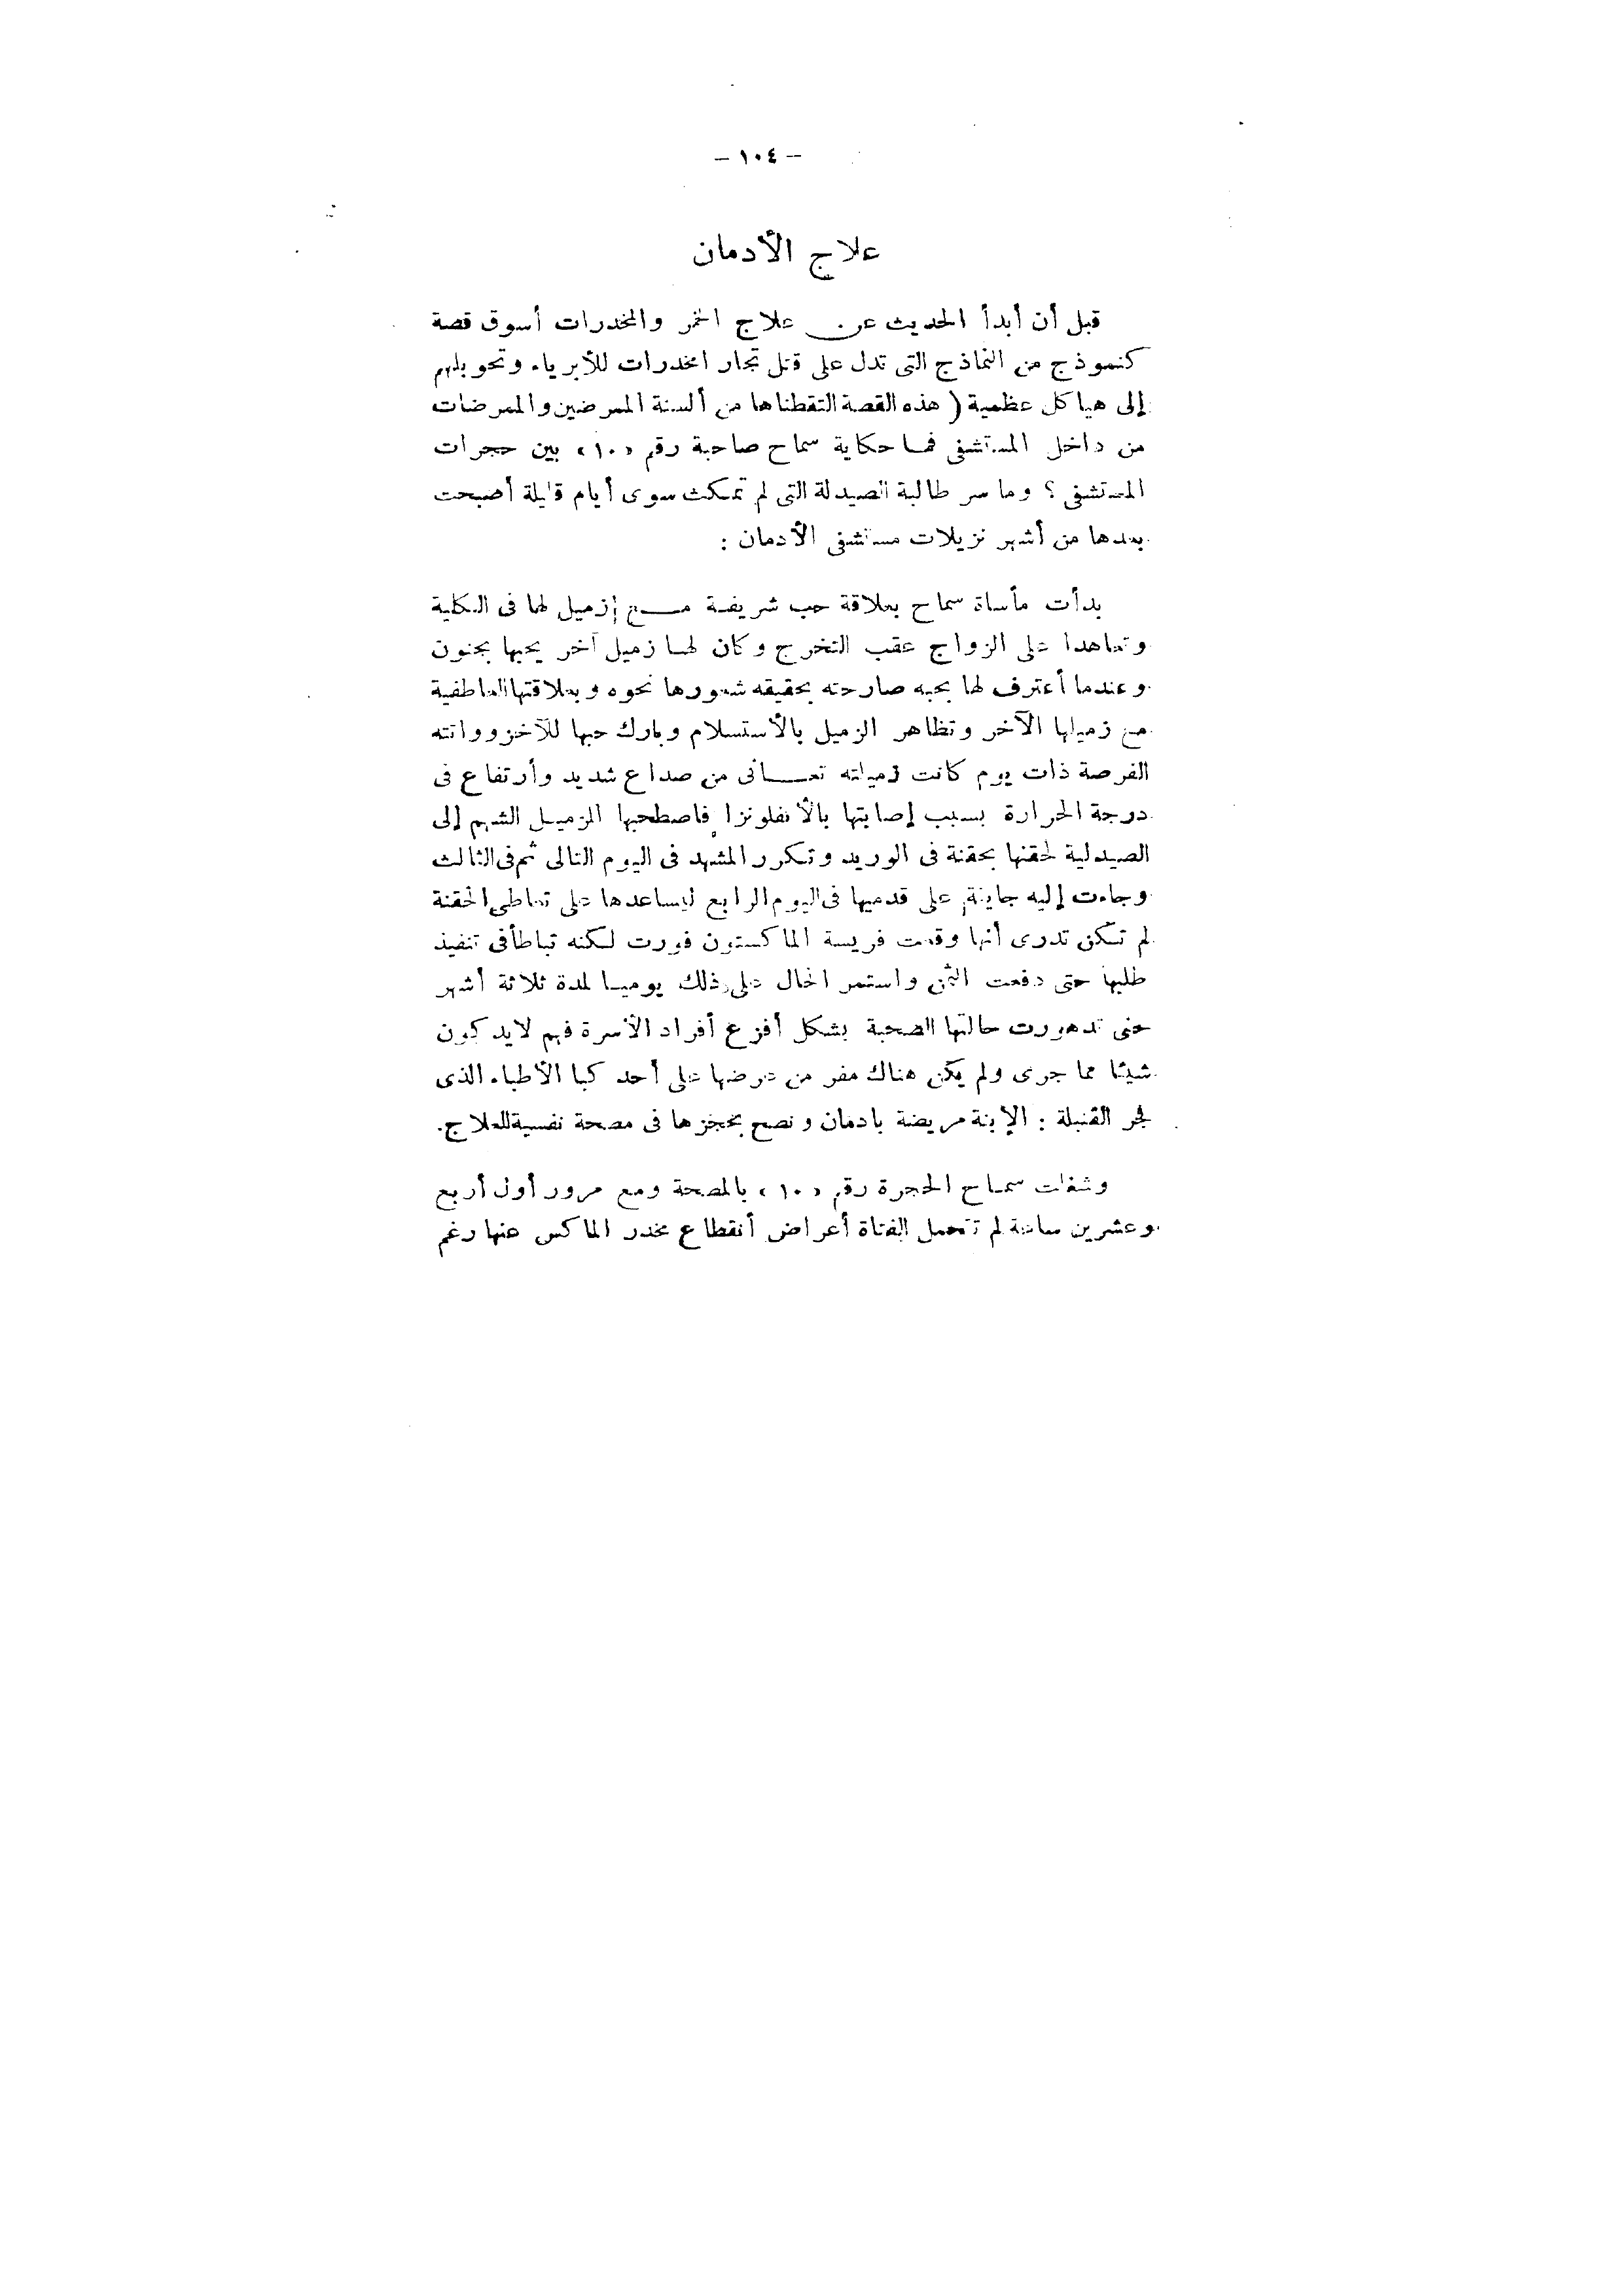 – ١٠٤ –
علاج الأدمان
قبل أن أبدأ الحديث عن علاج الخمر والمخدرات أسوق قصة
كنموذج من النماذج التى تدل على قتل تجار المخدرات للأبرياء وتحويلهم
إلى هياكل عظمية ( هذه القصة التقطناها من ألسنة الممرضين والممرضات
من داخل المستشفى فما حكاية سماح صاحبة رقم «١٠» بين حجرات
المستشفى ؟ وما سر طالبة الصيدلة التى لم تمكث سوى أيام قليلة أصبحت
بعدها من أشهر نزيلات مستشفى الأدمان :
بدأت مأساة سماح بعلاقة حب شريفة مع زميل لها فى الكلية
وتعاهدا على الزواج عقب التخرج وكان لها زميل آخر يحبها بجنون
وعندما أعترف لها بحبه صارحته بحقيقه شعورها نحوه وبعلاقتها العاطفية
مع زميلها الآخر وتظاهر الزميل بالأستسلام وبارك حبها للآخر وواتته
الفرصة ذات يوم كانت زميلته تعانى من صداع شديد وأرتفاع فى
درجة الحرارة بسبب إصابتها بالأنفلونزا فاصطحبها الزميل الشهم إلى
الصيدلية لحقنها بحقنة فى الوريد وتكرر المشهد فى اليوم التالى ثم فى الثالث
وجاءت إليه جاينة على قدميها فى اليوم الرابع ليساعدها على تعاطى الحقنة
لم تكن تدرى أنها وقعت فريسة الماكستون فورت لكنه تباطأ فى تنفيذ
طلبها حتى دفعت الثمن واستمر الحال على ذلك يوميا لمدة ثلاثة أشهر
حتى تدهورت حالتها الصحية بشكل أفزع أفراد الأسرة فهم لايدركون
شيئا مما جرى ولم يكن هناك مفر من عرضها على أحد كبا الأطباء الذى
فجر القنبلة : الإبنة مريضة بادمان ونصح بحجزها فى مصحة نفسية للعلاج.
وشغلت سماح الحجرة رقم «١٠» بالمصحة ومع مرور أول أربع
وعشرين ساعة لم تتحمل الفتاة أعراض أنقطاع مخدر الماكس عنها رغم